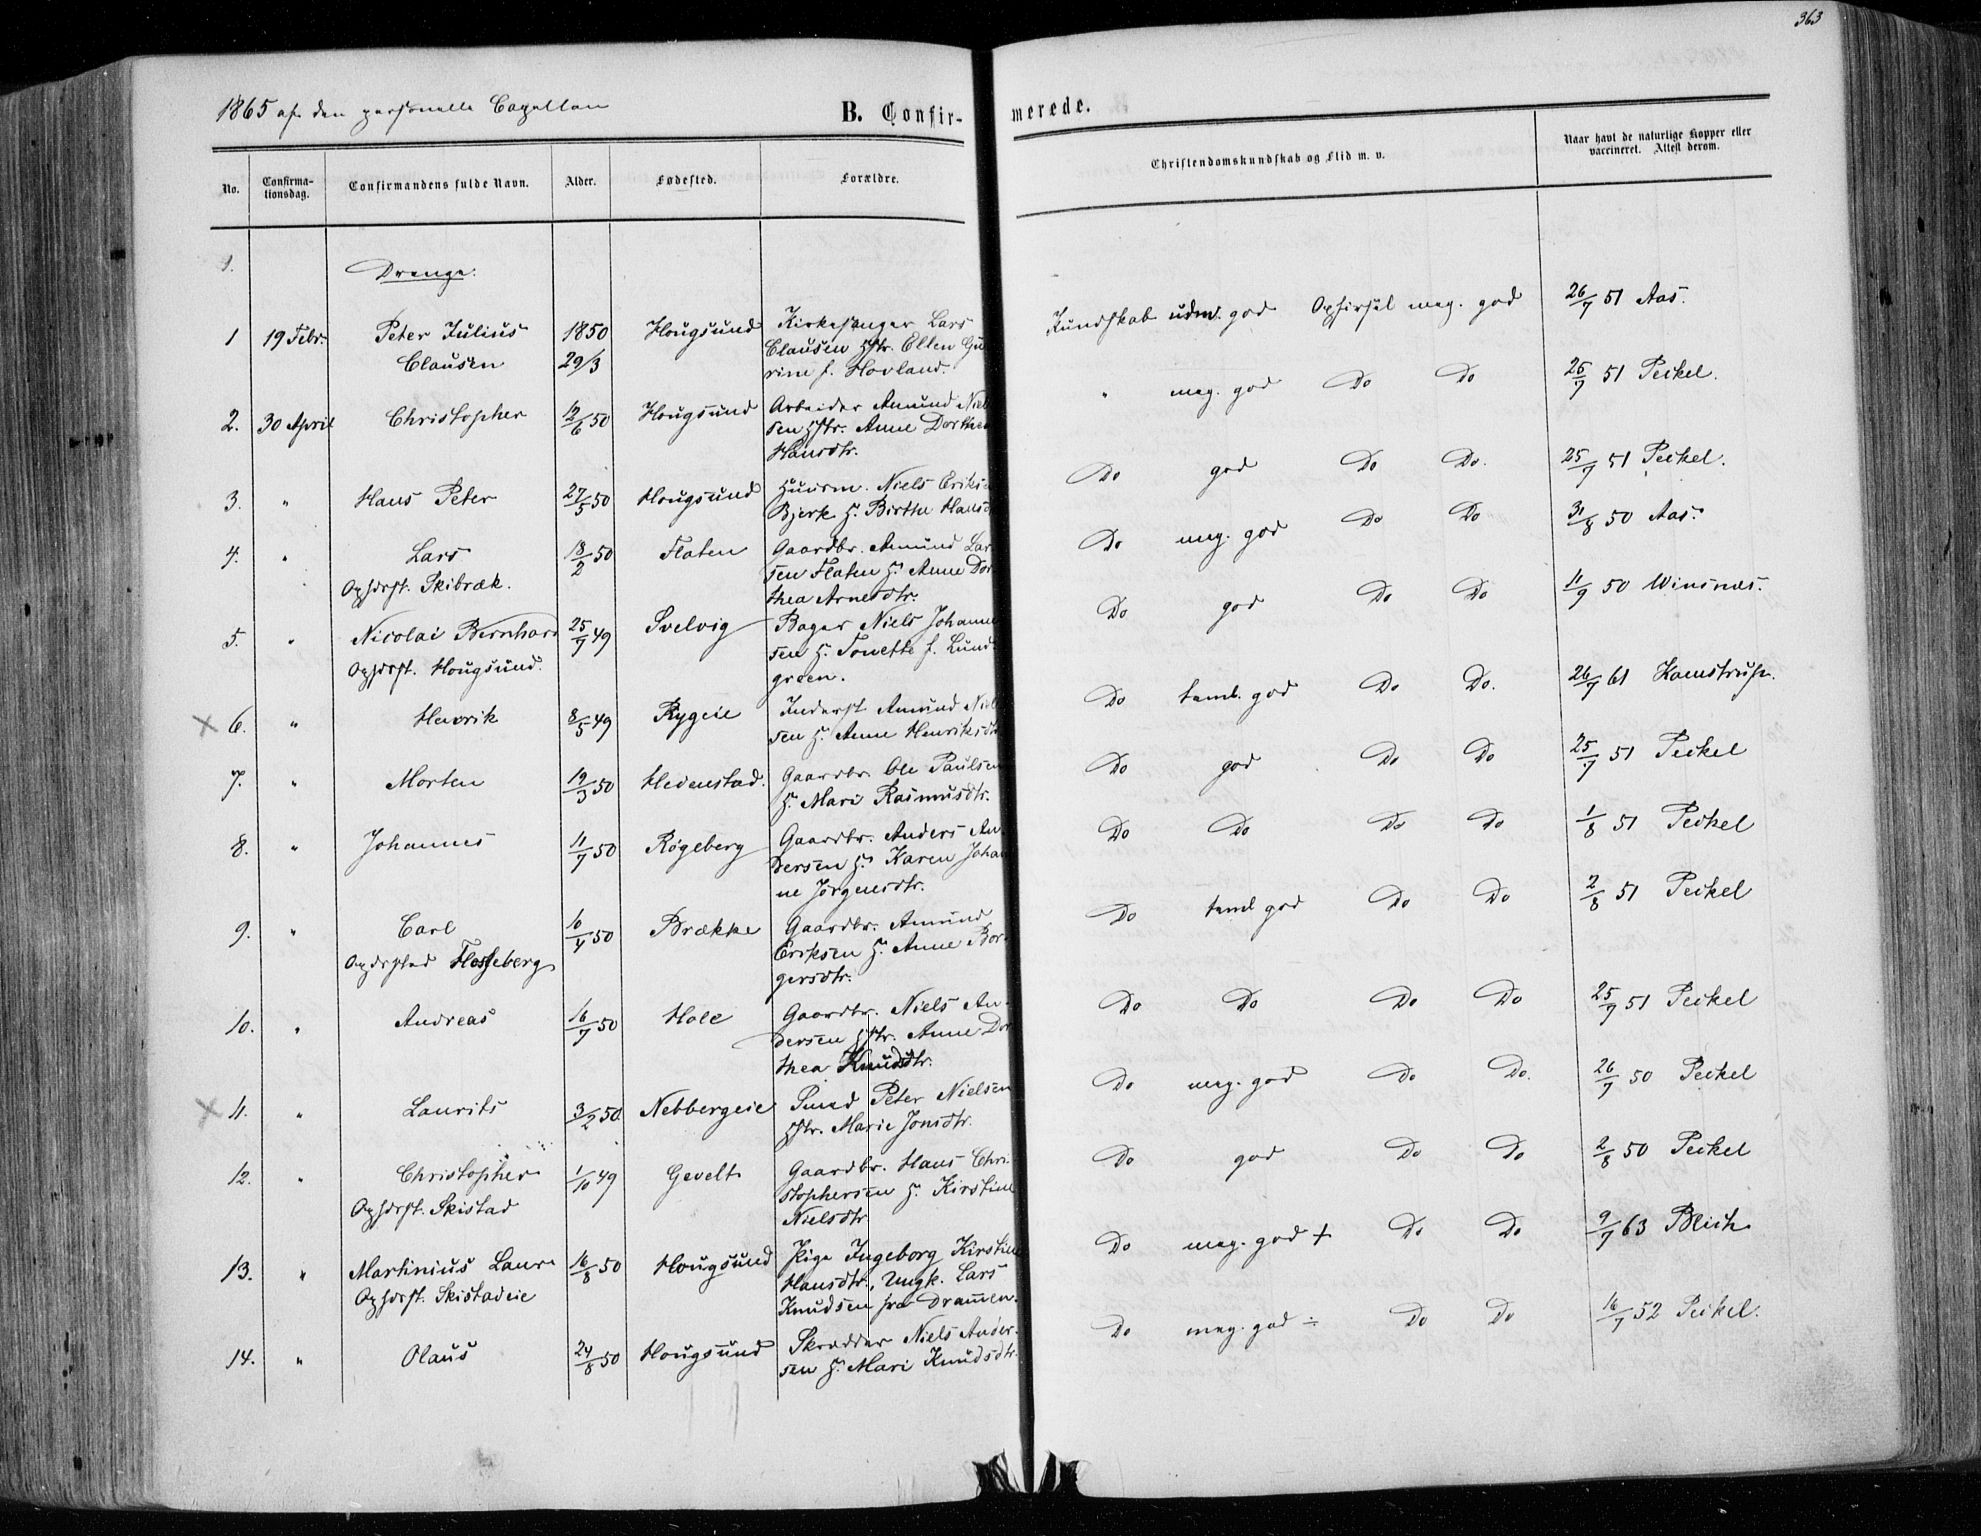 363
1865 af den personelle Capellan
B. Confir-
merede.
No.
Confirma-
tionsdag.
Confirmandens fulde Navn.
Alder.
Fødested.
Forældre.
Christendomskundskab og Flid m. v.
Naar havt de naturlige Kopper eller
vaccineret. Attest derom.
1.
Drenge.
1 19 Febr. Peter Julius 1850 Hougsund Kirkesanger Lars
Clausen 29/3 Clausen Hstr. Ellen Gu
rine f. Hovland.
Kundskab udm. god Opførsel meg. god 26/7 51 Aas.
2. 30 April Christopher 12/6 50 Hougsund Arbeider Amund Niel
sen Hstr. Anne Dorthea
Hansdtr.
" meg. god Do Do 25/7 51 Peckel.
3. " Hans Peter 27/5 50 Hougsund Huusm. Niels Eriks
Bjerk H. Birthe Hansd
Do god Do Do. 25/7 51 Peckel.
4. " Lars 18/2 50 Flaten Gaardbr. Amund Lar
Ophdst. Skibræk. sen Flaten H. Anne Dor
thea Arnesdtr.
Do meg. god Do Do 31/8 50 Aas.
5. " Nicolai Bernhard 25/9 49 Svelvig Bager Niels Johanne
Ophdst. Hougsund. sen H. Tonette f. Lund-
green.
Do god Do Do 11/9 50 Winsnes.
× 6. " Henrik 8/5 49 Rygeie Inderst Amund Niel
sen H. Anne Henriksdt
Do temb. god Do Do. 26/7 61 Kamstrup.
7. " Morten 19/3 50 Hedenstad. Gaardbr. Ole Paulsen
H. Mari Rasmusdtr.
Do god Do Do 25/7 51 Peckel
8. " Johannes 11/7 50 Røgeberg Gaardbr. Anders An
dersen H. Karen Johan
ne Jørgensdtr.
Do Do Do Do 1/8 51 Peckel
9. " Carl 16/4 50 Brække Gaardbr. Amund
Ophdstad Flesseberg Eriksen H. Anne Bor-
gersdtr.
Do temb god Do Do 2/8 51 Peckel
10. " Andreas 16/7 50 Hole Gaardbr. Niels An-
dersen Hstr. Anne Dor
thea Knudsdtr.
Do Do Do Do 25/7 51 Peckel
× 11. " Laurits 3/2 50 Nebbergeie Smed Peter Nielsen
Hstr. Marie Jonsdtr.
Do meg. god Do Do. 26/7 50 Peckel
12. " Christopher 1/10 49 Gevelt Gaardbr. Hans Chri-
Ophdst. Skistad stophersen H. Kirstine
Nielsdtr
Do god Do Do 2/8 50 Peckel
13. " Martinius Laur. 16/8 50 Hougsund Pige Ingeborg Kirstine
Ophdst. Skistadeie Hansdtr., Ungk. Lars
Knudsen fra Drammen.
Do meg. god + Do Do 9/7 63 Blich
14. " Olaus 24/8 50 Hougsund Skrædder Niels Ander-
sen H. Mari Knudsdtr.
Do meg. god ÷ Do Do 16/7 52 Peckel.